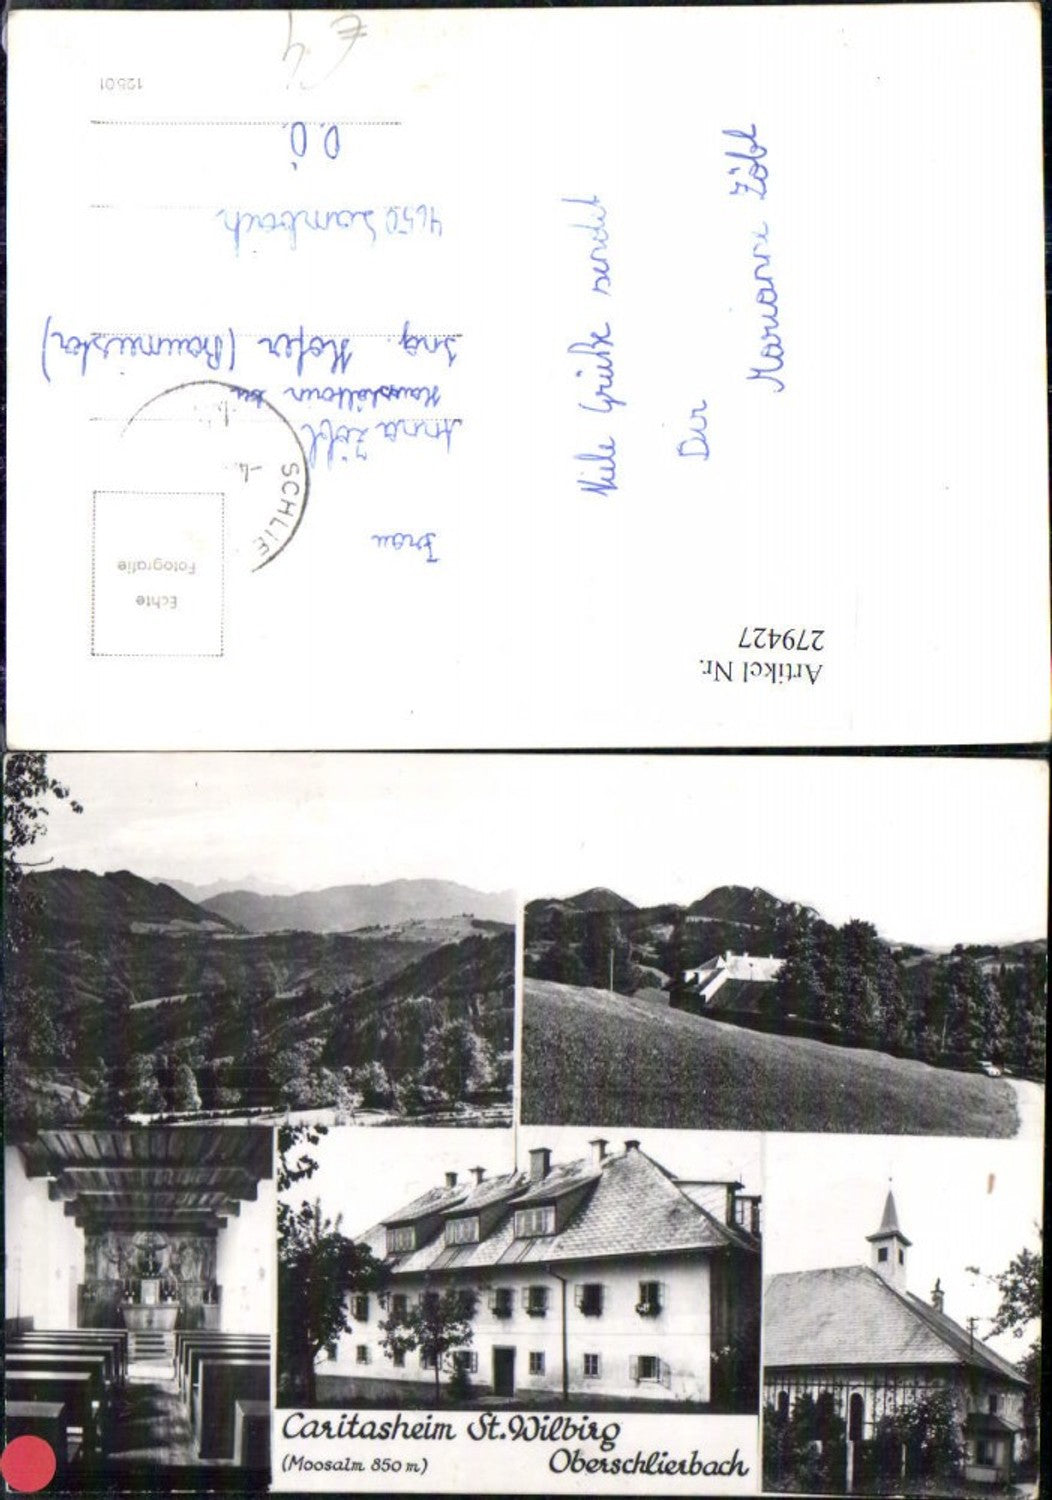 Artikel Nr.
279427
Echte
Fotografie
SCHLIE
Frau
Anna Zöbl
Haushälterin bei
Ing. Hofer (Baumeister)
4650 Lambach
O.Ö.
12501
€ 4
Viele Grüße sendet
Dir
Marianne Zöbl
Caritasheim St. Wilbirg
(Moosalm 850 m)
Oberschlierbach